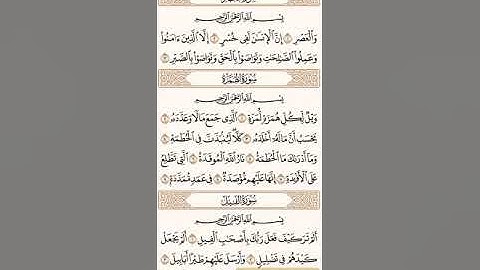 بِسْمِ اللَّهِ الرَّحْمَٰنِ الرَّحِيمِ
وَالْعَصْرِ ١ إِنَّ الْإِنسَٰنَ لَفِى خُسْرٍ ٢ إِلَّا الَّذِينَ ءَامَنُوا
وَعَمِلُوا الصَّٰلِحَٰتِ وَتَوَاصَوْا بِالْحَقِّ وَتَوَاصَوْا بِالصَّبْرِ ٣
سُورَةُ الهُمَزَةِ
بِسْمِ اللَّهِ الرَّحْمَٰنِ الرَّحِيمِ
وَيْلٌ لِّكُلِّ هُمَزَةٍ لُّمَزَةٍ ١ الَّذِى جَمَعَ مَالًا وَعَدَّدَهُۥ ٢
يَحْسَبُ أَنَّ مَالَهُۥٓ أَخْلَدَهُۥ ٣ كَلَّا لَيُنۢبَذَنَّ فِى الْحُطَمَةِ ٤
وَمَآ أَدْرَىٰكَ مَا الْحُطَمَةُ ٥ نَارُ اللَّهِ الْمُوقَدَةُ ٦ الَّتِى تَطَّلِعُ
عَلَى الْأَفْـِٔدَةِ ٧ إِنَّهَا عَلَيْهِم مُّؤْصَدَةٌ ٨ فِى عَمَدٍ مُّمَدَّدَةٍۭ ٩
سُورَةُ الفِيلِ
بِسْمِ اللَّهِ الرَّحْمَٰنِ الرَّحِيمِ
أَلَمْ تَرَ كَيْفَ فَعَلَ رَبُّكَ بِأَصْحَٰبِ الْفِيلِ ١ أَلَمْ يَجْعَلْ
كَيْدَهُمْ فِى تَضْلِيلٍ ٢ وَأَرْسَلَ عَلَيْهِمْ طَيْرًا أَبَابِيلَ ٣